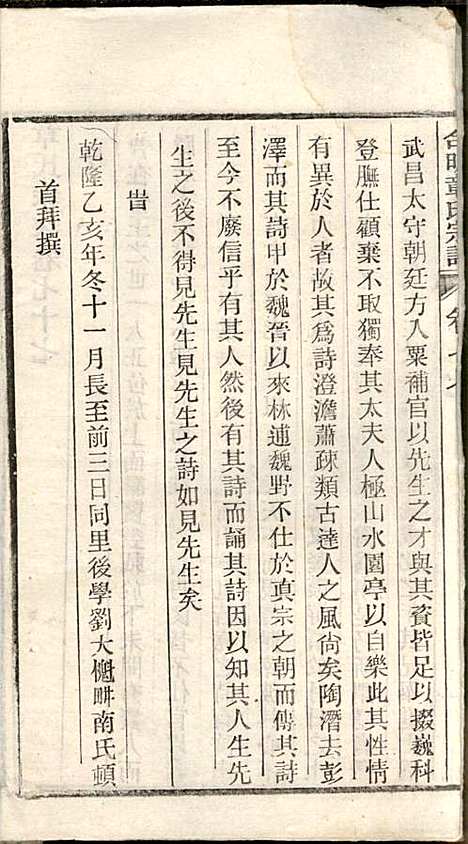 武昌太守朝廷方入粟補官以先生之才與其貲皆足以掇巍科
登膴仕顧棄不取獨奉其太夫人極山水園亭以自樂此其性情
有異於人者故其爲詩澄澹蕭疎類古達人之風尙矣陶潛去彭
澤而其詩甲於魏晉以來林逋魏野不仕於眞宗之朝而傳其詩
至今不廢信乎有其人然後有其詩而誦其詩因以知其人生先
生之後不得見先生見先生之詩如見先生矣
旹
乾隆乙亥年冬十一月長至前三日同里後學劉大櫆畊南氏頓
首拜撰